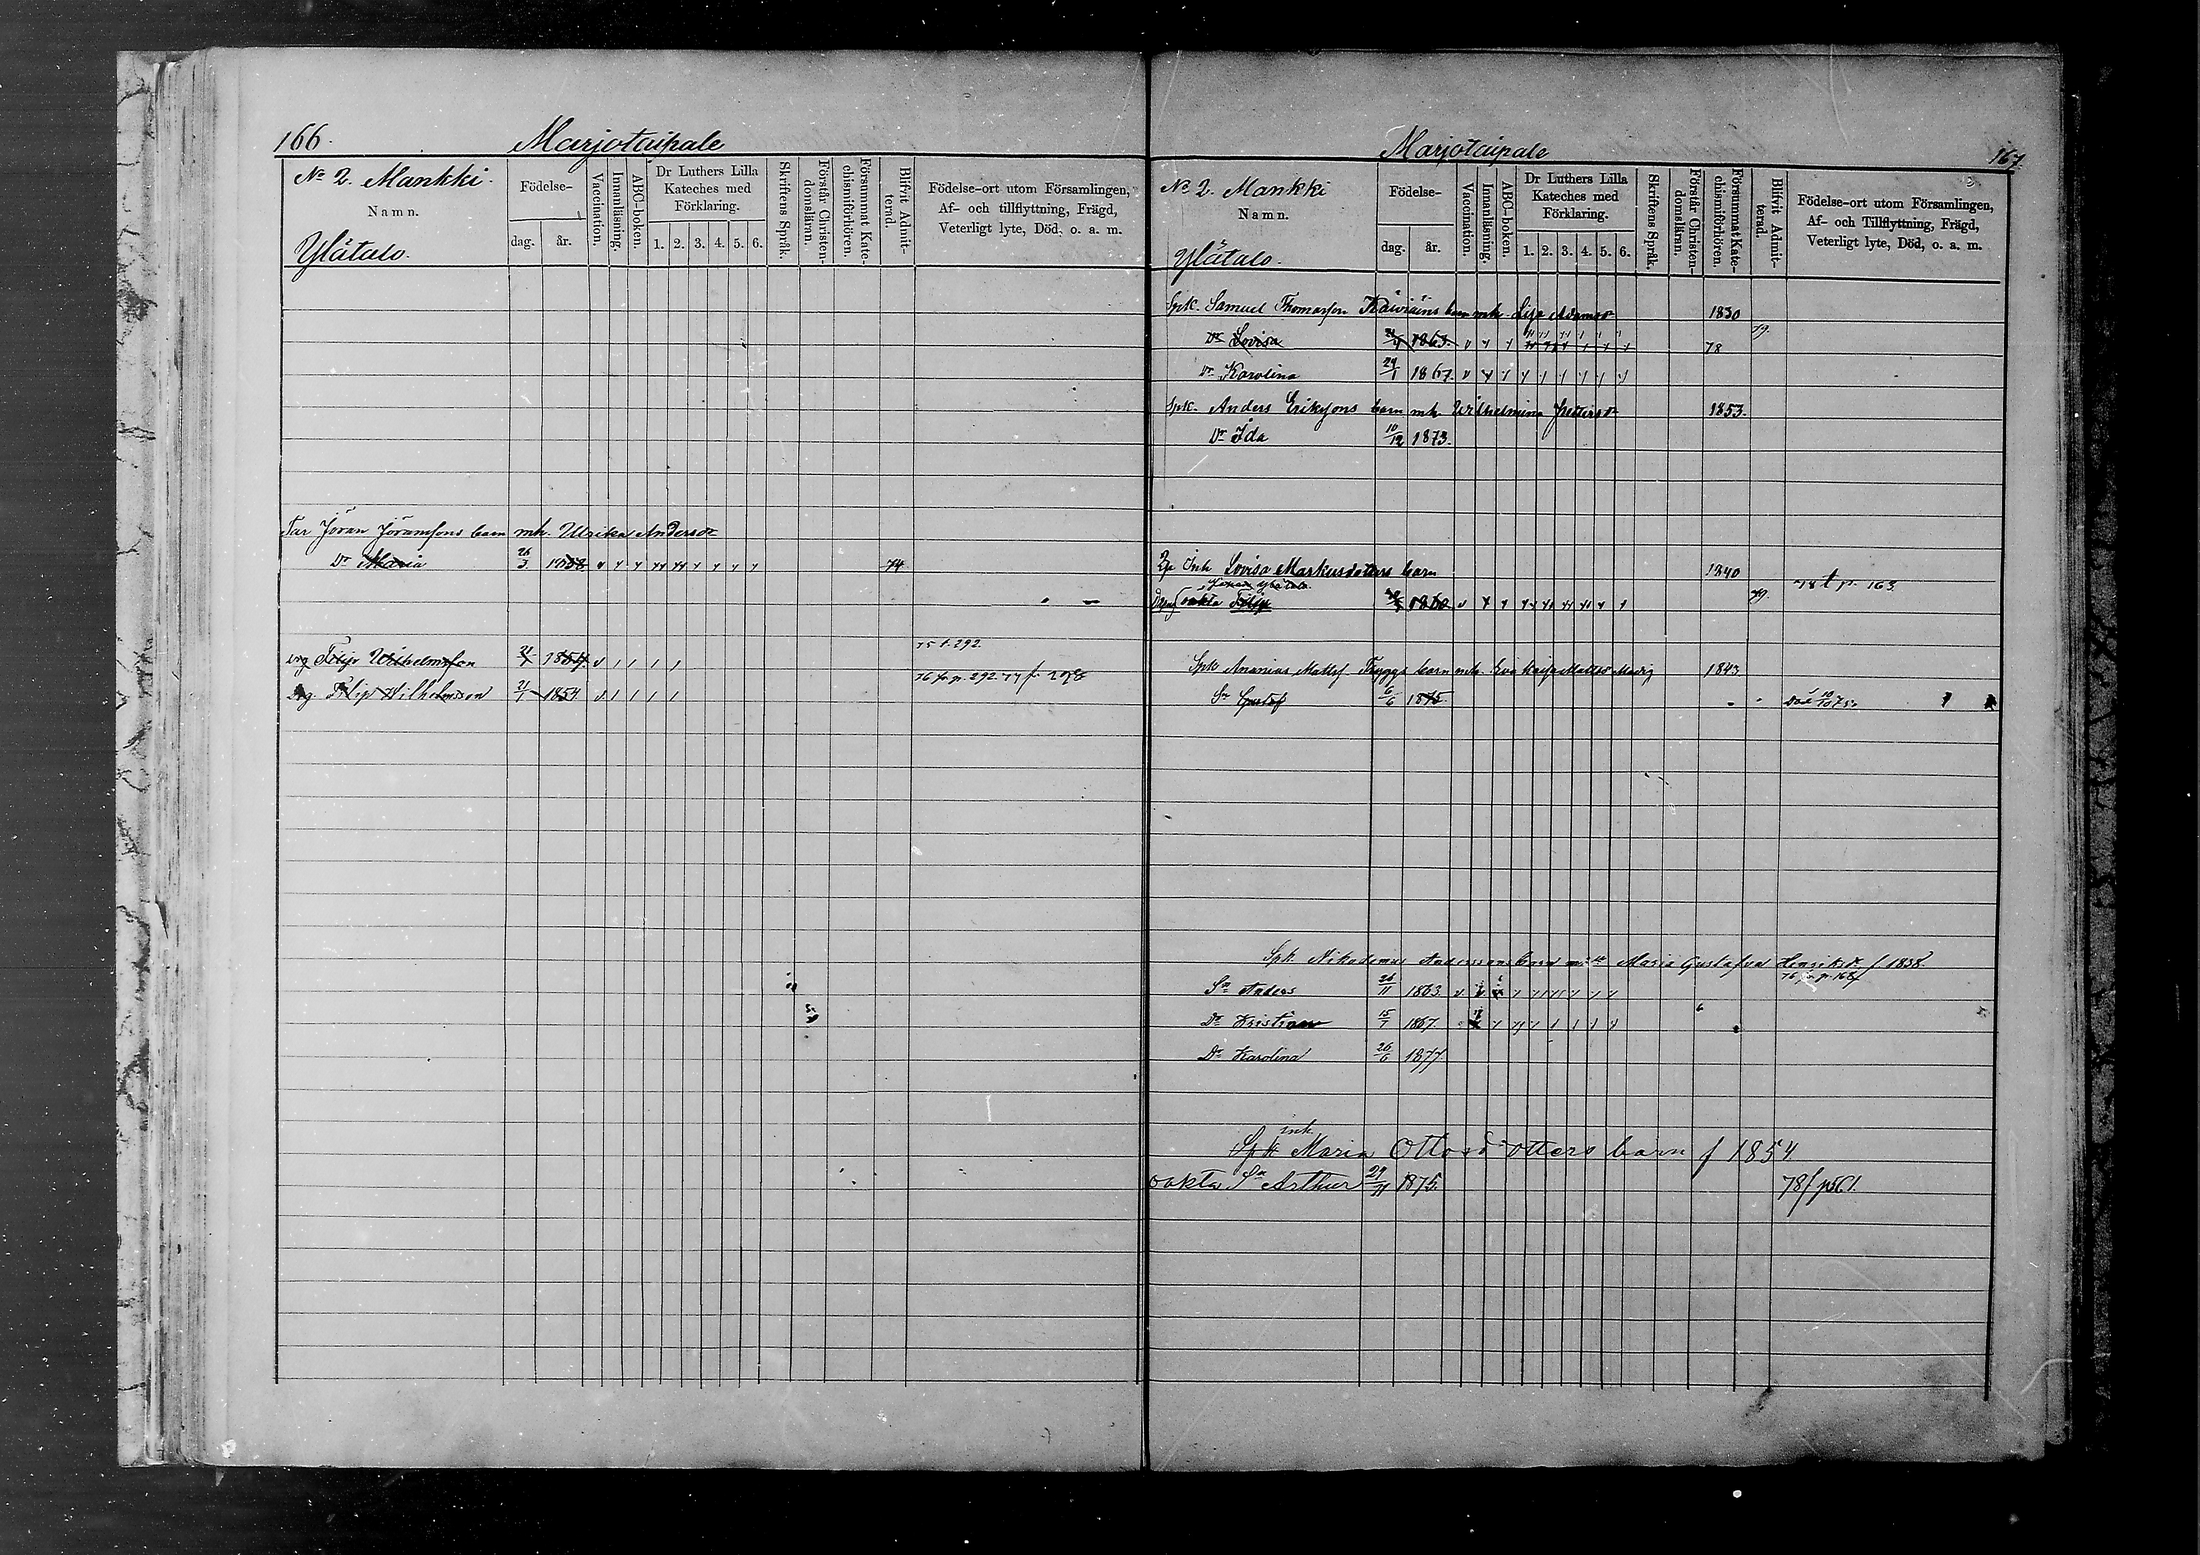 166. Marjotaipale
No 2. Mankki.
Namn.
Ylätalo.
Födelse-
dag. år.
Vaccination.
Innanläsning.
ABC-boken.
Dr Luthers Lilla
Kateches med
Förklaring.
1. 2. 3. 4. 5. 6.
Skriftens Språk.
Förstår Christen-
domsläran.
Försummat Kate-
chismiförhören.
Blifvit Admit-
terad.
Födelse-ort utom Församlingen,
Af- och tillflyttning, Frägd,
Veterligt lyte, Död, o. a. m.
Jöran Jöransons barn mh. Ulrika Andersdr
Dr Maria 26/3 1858 74
75 t. 292
Drg Filip Wilhelmsson 21/1 1854
Drg. Filip Wilhelmsson 21/1 1854
Marjotaipale 167
No 2. Mankki
Namn.
Ylätalo.
Födelse-
dag. år.
Vaccination.
Innanläsning.
ABC-boken.
Dr Luthers Lilla
Kateches med
Förklaring.
1. 2. 3. 4. 5. 6.
Skriftens Språk.
Förstår Christen-
domsläran.
Försummat Kate-
chismiförhören.
Blifvit Admit-
terad.
Födelse-ort utom Församlingen,
Af- och Tillflyttning, Frägd,
Veterligt lyte, Död, o. a. m.
Spk. Samuel Thomasson barn mh. Lisa Adamsdr 1830
Dr Lovisa 1863. 78 79.
Dr Karolina 24/1 1867.
Spk. Anders Eriksons barn mh Wilhelmina 1853.
Dr Ida 10/12 1873.
Inh Lovisa Markusdotters barn 1840
oäkta Filip 1860 79. 78 t p. 163
Spk Ananias Mattss. Tryggs barn mh. Eva 1843
Sn Gustaf 6/6 1875. Död 10/10 75.
Spk Nikodemus Anderssons barn Maria Gustafva Henriksdr f 1838.
76 fr p. 168
Sn Anders 26/11 1863
Dr Kristina 15/7 1867
Dr Karolina 26/6 1877.
inh
Spk Maria Ottosdotters barn f 1854
oäkta Sn Arthur 29/11 1875. 78 f p561.